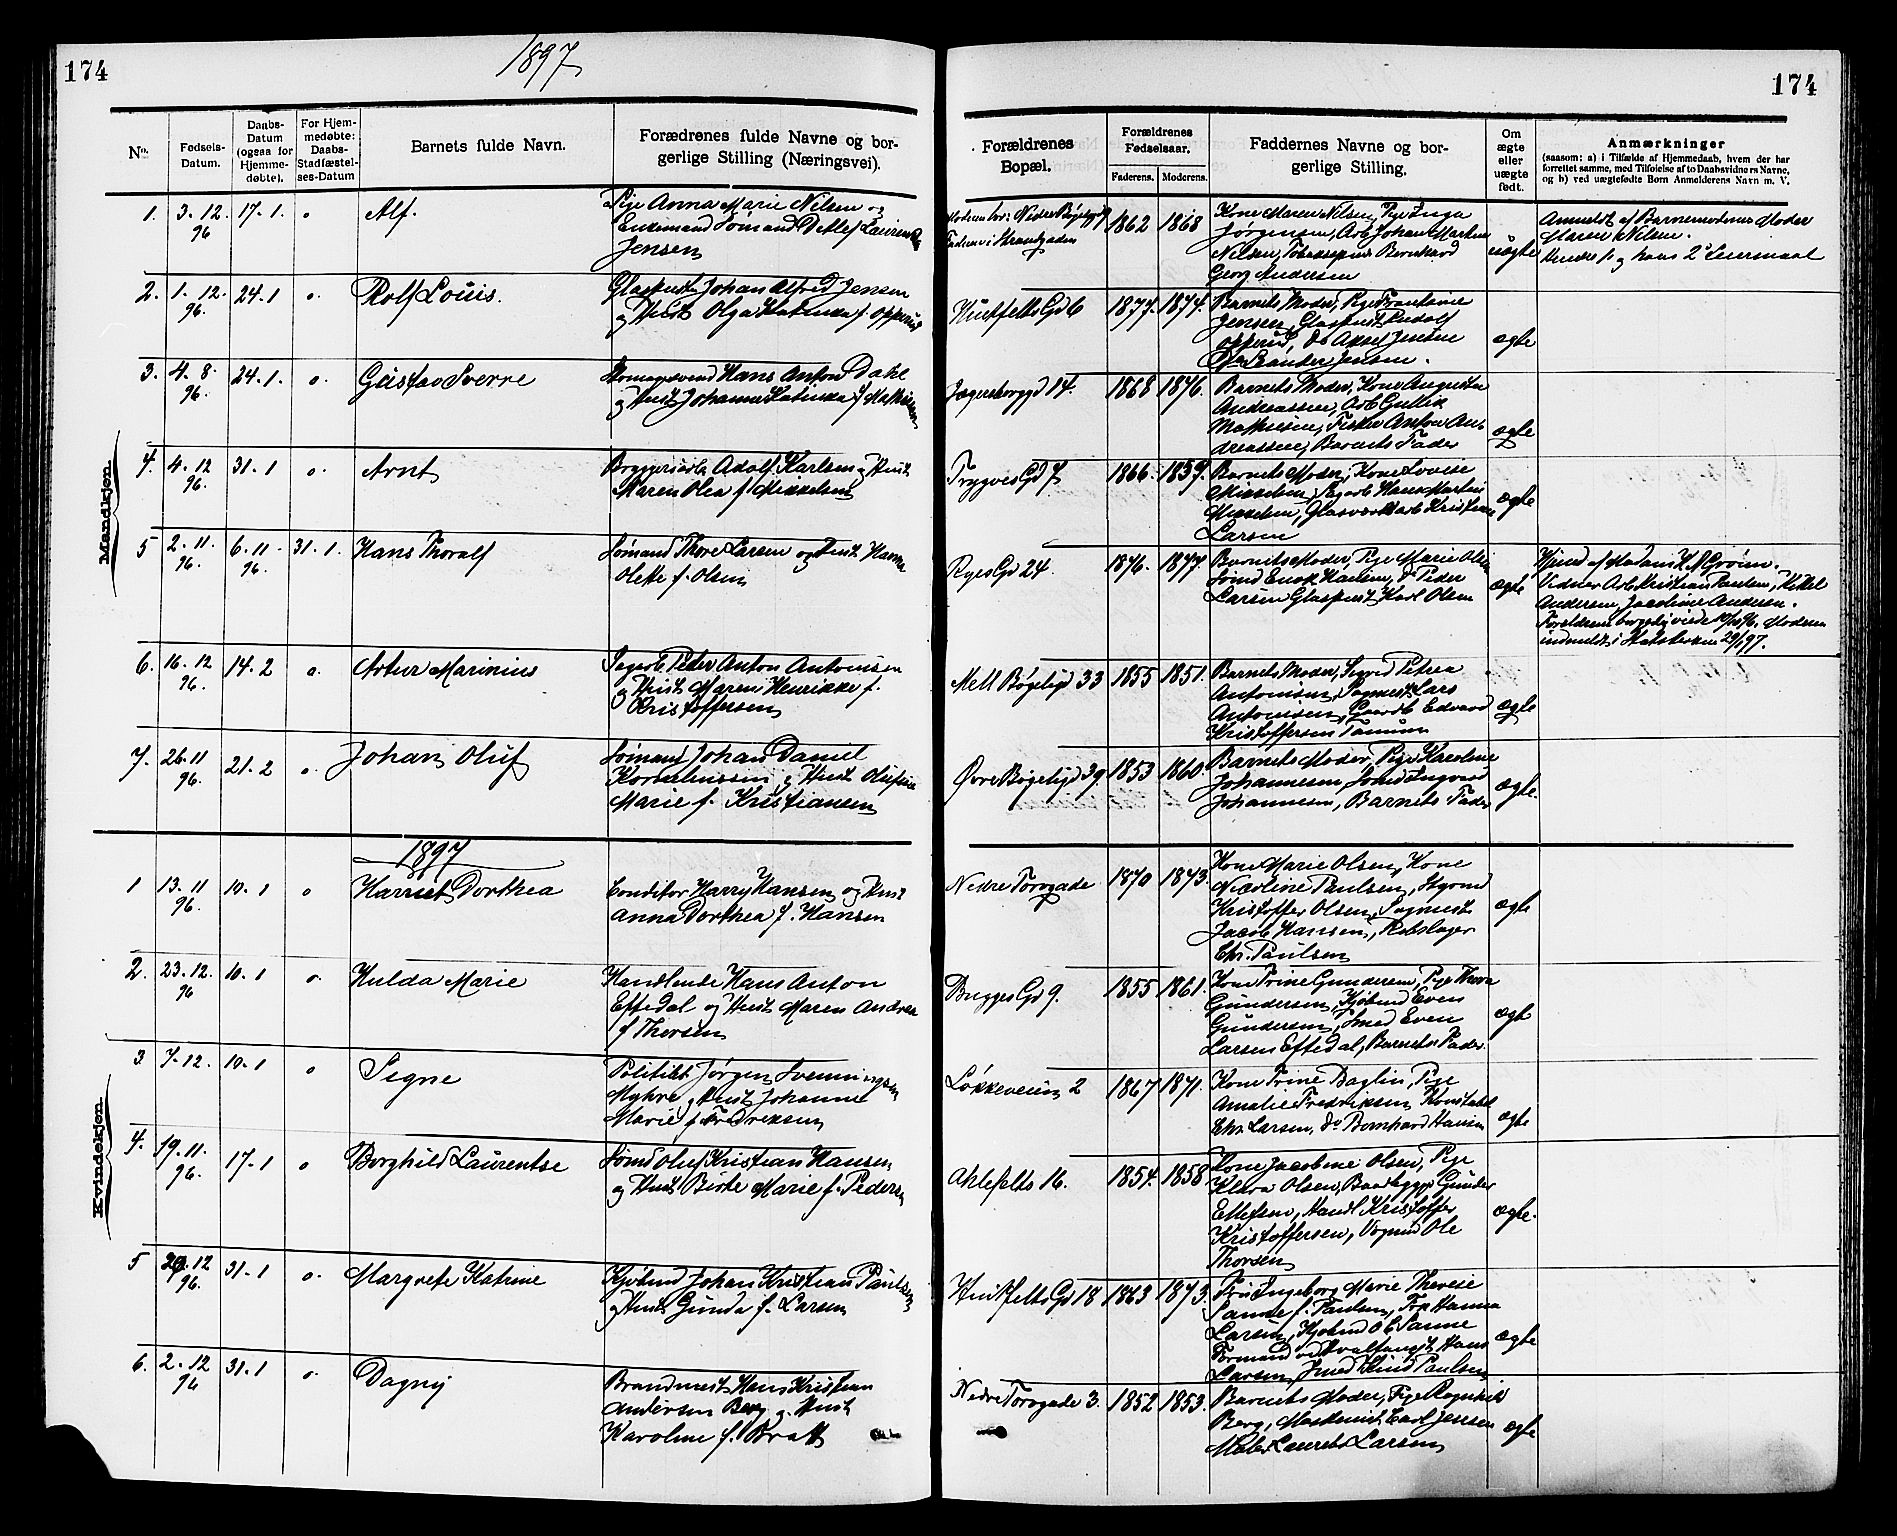 174
1897
174
No.
Fødsels-Datum.
Daabs-Datum (ogsaa for Hjemme-døbte).
For Hjem-medøbte: Daabs-Stadfæstel-ses-Datum
Barnets fulde Navn.
Forædrenes fulde Navne og bor-
gerlige Stilling (Næringsvei).
Forældrenes
Bopæl.
Forældrenes
Fødselsaar.
Faderens. Moderens.
Faddernes Navne og bor-
gerlige Stilling.
Om ægte eller uægte født.
Anmærkninger
(saasom: a) i Tilfælde af Hjemmedaab, hvem der har
forrettet samme, med Tilføielse af to Daabsvidners Navne,
og b) ved uægtefødte Børn Anmelderens Navn m. V.
Mandkjøn.
1. 3-12. 96 17-1. o Alf.
Pige Anna Marie Nilsen og
Enkemand Sømand Detlef Laurentius
Jensen
1862 1868
Kone Maren Nilsen, Pige Inga
Jørgensen, Arb Johan Martin
Nilsen, Bernhard
Georg Andersen
uægte
Anmeldt af Barnemoderens Moder
Maren Nilsen.
Hendes 1. og hans 2. Leiermaal
2. 1.12. 96. 24-1 o. Rolf Louis.
Glaspust Johan Alfred Jensen
og Hust Olga Katinka f. Opperud
Huitfelts Gd 6 1877. 1874.
Barnets Moder, Pige
Jensen, Glaspust Rudolf
Opperud, Do Aksel Jensen
Do Leander Jensen.
ægte
3. 4-8. 96. 24-1. o. Gustav Sverre
Hans Anton Dahl
og Hust Johanne Katinka f Mathisen
Jægersborggd 14. 1868 1876.
Barnets Moder, Kone Augusta
Andreassen, Arb Gullik
Mathisen, Fisker Anton An-
dreassen, Barnets Fader
ægte
4. 4-12 96. 31-1 o. Arnt
Bryggeriarb Adolf Karlsen og Hust
Maren Olea f. Mikkelsen
Tryggves Gd 7 1866. 1859.
Barnets Moder, Kone Lovise
Mikkelsen, Sagarb Hans Martin
Mikkelsen, Glasværksarb Kristian
Larsen
ægte
5 2-11. 96. 6-11 96. 31-1. Hans Thoralf
Sømand Thore Larsen og Hust Hanna
Olette f. Olsen
Ryes Gd 24. 1876. 1877.
Barnets Moder, Pige Marie Olsen
Sømd Enok Hansen, Do Peder
Larsen Glaspust Karl Olsen
ægte
Hjmd af Madam K. N. Grøm.
Vidner Arb Kristian Paulsen, Kittel
Andersen, Jacobine Andersen.
Forældrene borgerlig viede Moderen
indmeldt i Statskirken 29/1 97.
6. 16-12 96. 14-2 o. Artur Marinius
Sagarb Peder Anton Antonisen
og Hust Maren Henrikke f.
Kristoffersen
Mell Bøgeligd 33 1855 1851.
Barnets Moder, Sigrid Petrea
Antonisen, Sagmest Lars
Antonisen, Gaardb Edvard
Kristoffersen
ægte
7. 26-11 96. 21-2 o. Johan Oluf
Sømand Johan Daniel
Korneliussen og Hust Olufine
Marie f. Kristiansen
Øvre Bøgeligd 39. 1853 1860.
Barnets Moder, Pige Karoline
Johannesen, Sømd Ingvard
Johannesen, Barnets Fader
ægte.
1897
Kvindekjøn.
1 13-11 96. 10-1 o Harriet Dorthea
Conditor Harry Hansen og Hust
Anna Dorthea f. Hansen
Nedre Torvgade 1870 1873.
Kone Marie Olsen, Kone
Nicoline Paulsen, Styrmd
Kristoffer Olsen, Sagmest
Jacob Hansen, Rebslager
Chr. Paulsen
ægte
2. 23-12. 96 10-1 o. Hulda Marie
Handlende Hans Anton
Eftedal og Hust Maren Andrea
f Thorsen
Bugges Gd 9. 1855 1861.
Kone Trine Gundersen, Pige Thora
Gundersen, Kjøbmd Even
Gundersen, Smed Even
Larsen Eftedal, Barnets Fader.
ægt
3 7-12. 10-1 o Signe
Politibt Jørgen Svenningsen
Myhre og Hust Johanne
Marie f. Fredriksen
Løkkeveien 2 1867 1871.
Kone Trine Daglin, Pige
Amalie Fredriksen, Konstabel
Chr Larsen, Do Bernhard Hansen
ægte
4. 19.11. 96. 17-1 o Borghild Laurentse
Sømd Oluf Kristian Hansen
og Hust Birte Marie f. Pedersen
Ahlefelts 16. 1854. 1858
Kone Jacobine Olsen, Pige
Klara Olsen, Baadbygger Gunder
Ellefsen, Handl Kristoffer
Kristoffersen, Vognmd Ole
Thorsen
ægte.
5 12 96. 31-1 o. Margrete Katrine
Kjøbmd Johan Kristian Paulsen
og Hust Gunda f. Larsen
Huitfelts Gd 18 1863 1873.
Fru Ingeborg Marie Therese
Sanne f. Paulsen, Frk Hanna
Larsen, Kjøbmd O C Sanne
Formand ved Hvalfangst Hans
Larsen, Smed Knud Paulsen
ægte
6. 2-12 96 31-1 o. Dagny
Brandmest Hans Kristian
Andersen Berg og Hust
Karoline f. Bratt
Nedre Torvgade 3. 1852 1853.
Barnets Moder, Pige Ragnhild
Berg, Maskinist Carl Jensen
Maler Laurits Larsen
ægte